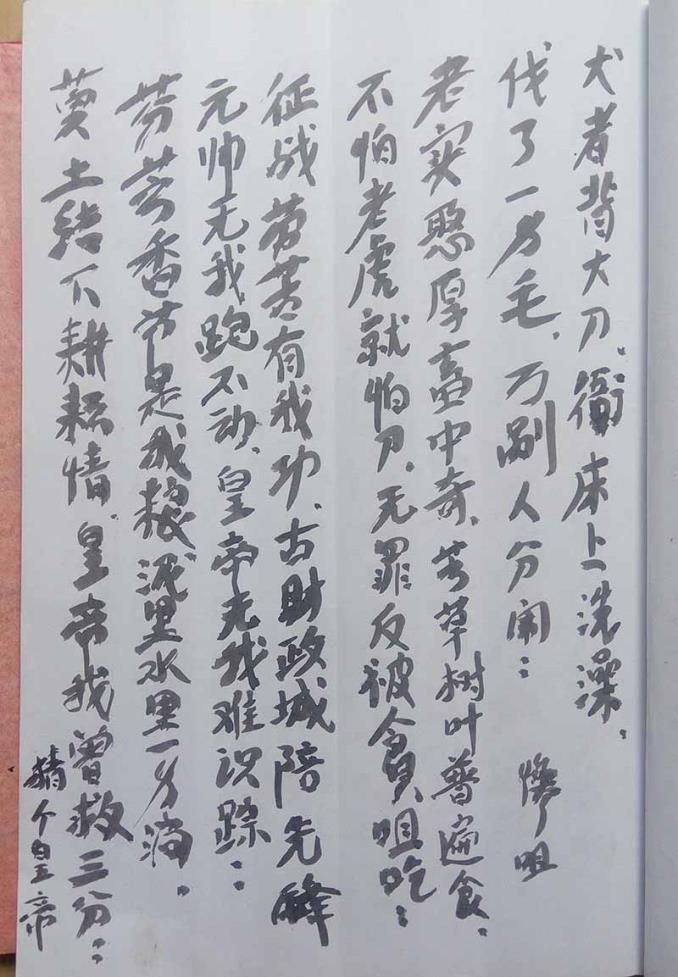 犬者背大刀、衙床上洗澡。
伐了一身毛、万剐人分闹：惨咀
老实憨厚畜中奇、芳草树叶普遍食。
不怕老虎就怕刀、无罪反被贪咀吃：
征战劳苦有我功、古时政城陪先峰
元帅无我跑不动、皇帝无我难识踪：
芳芳香芳是我粮、泥里水里一身淌。
土结下耕耘情、皇帝我曾救三分：
猜个皇帝